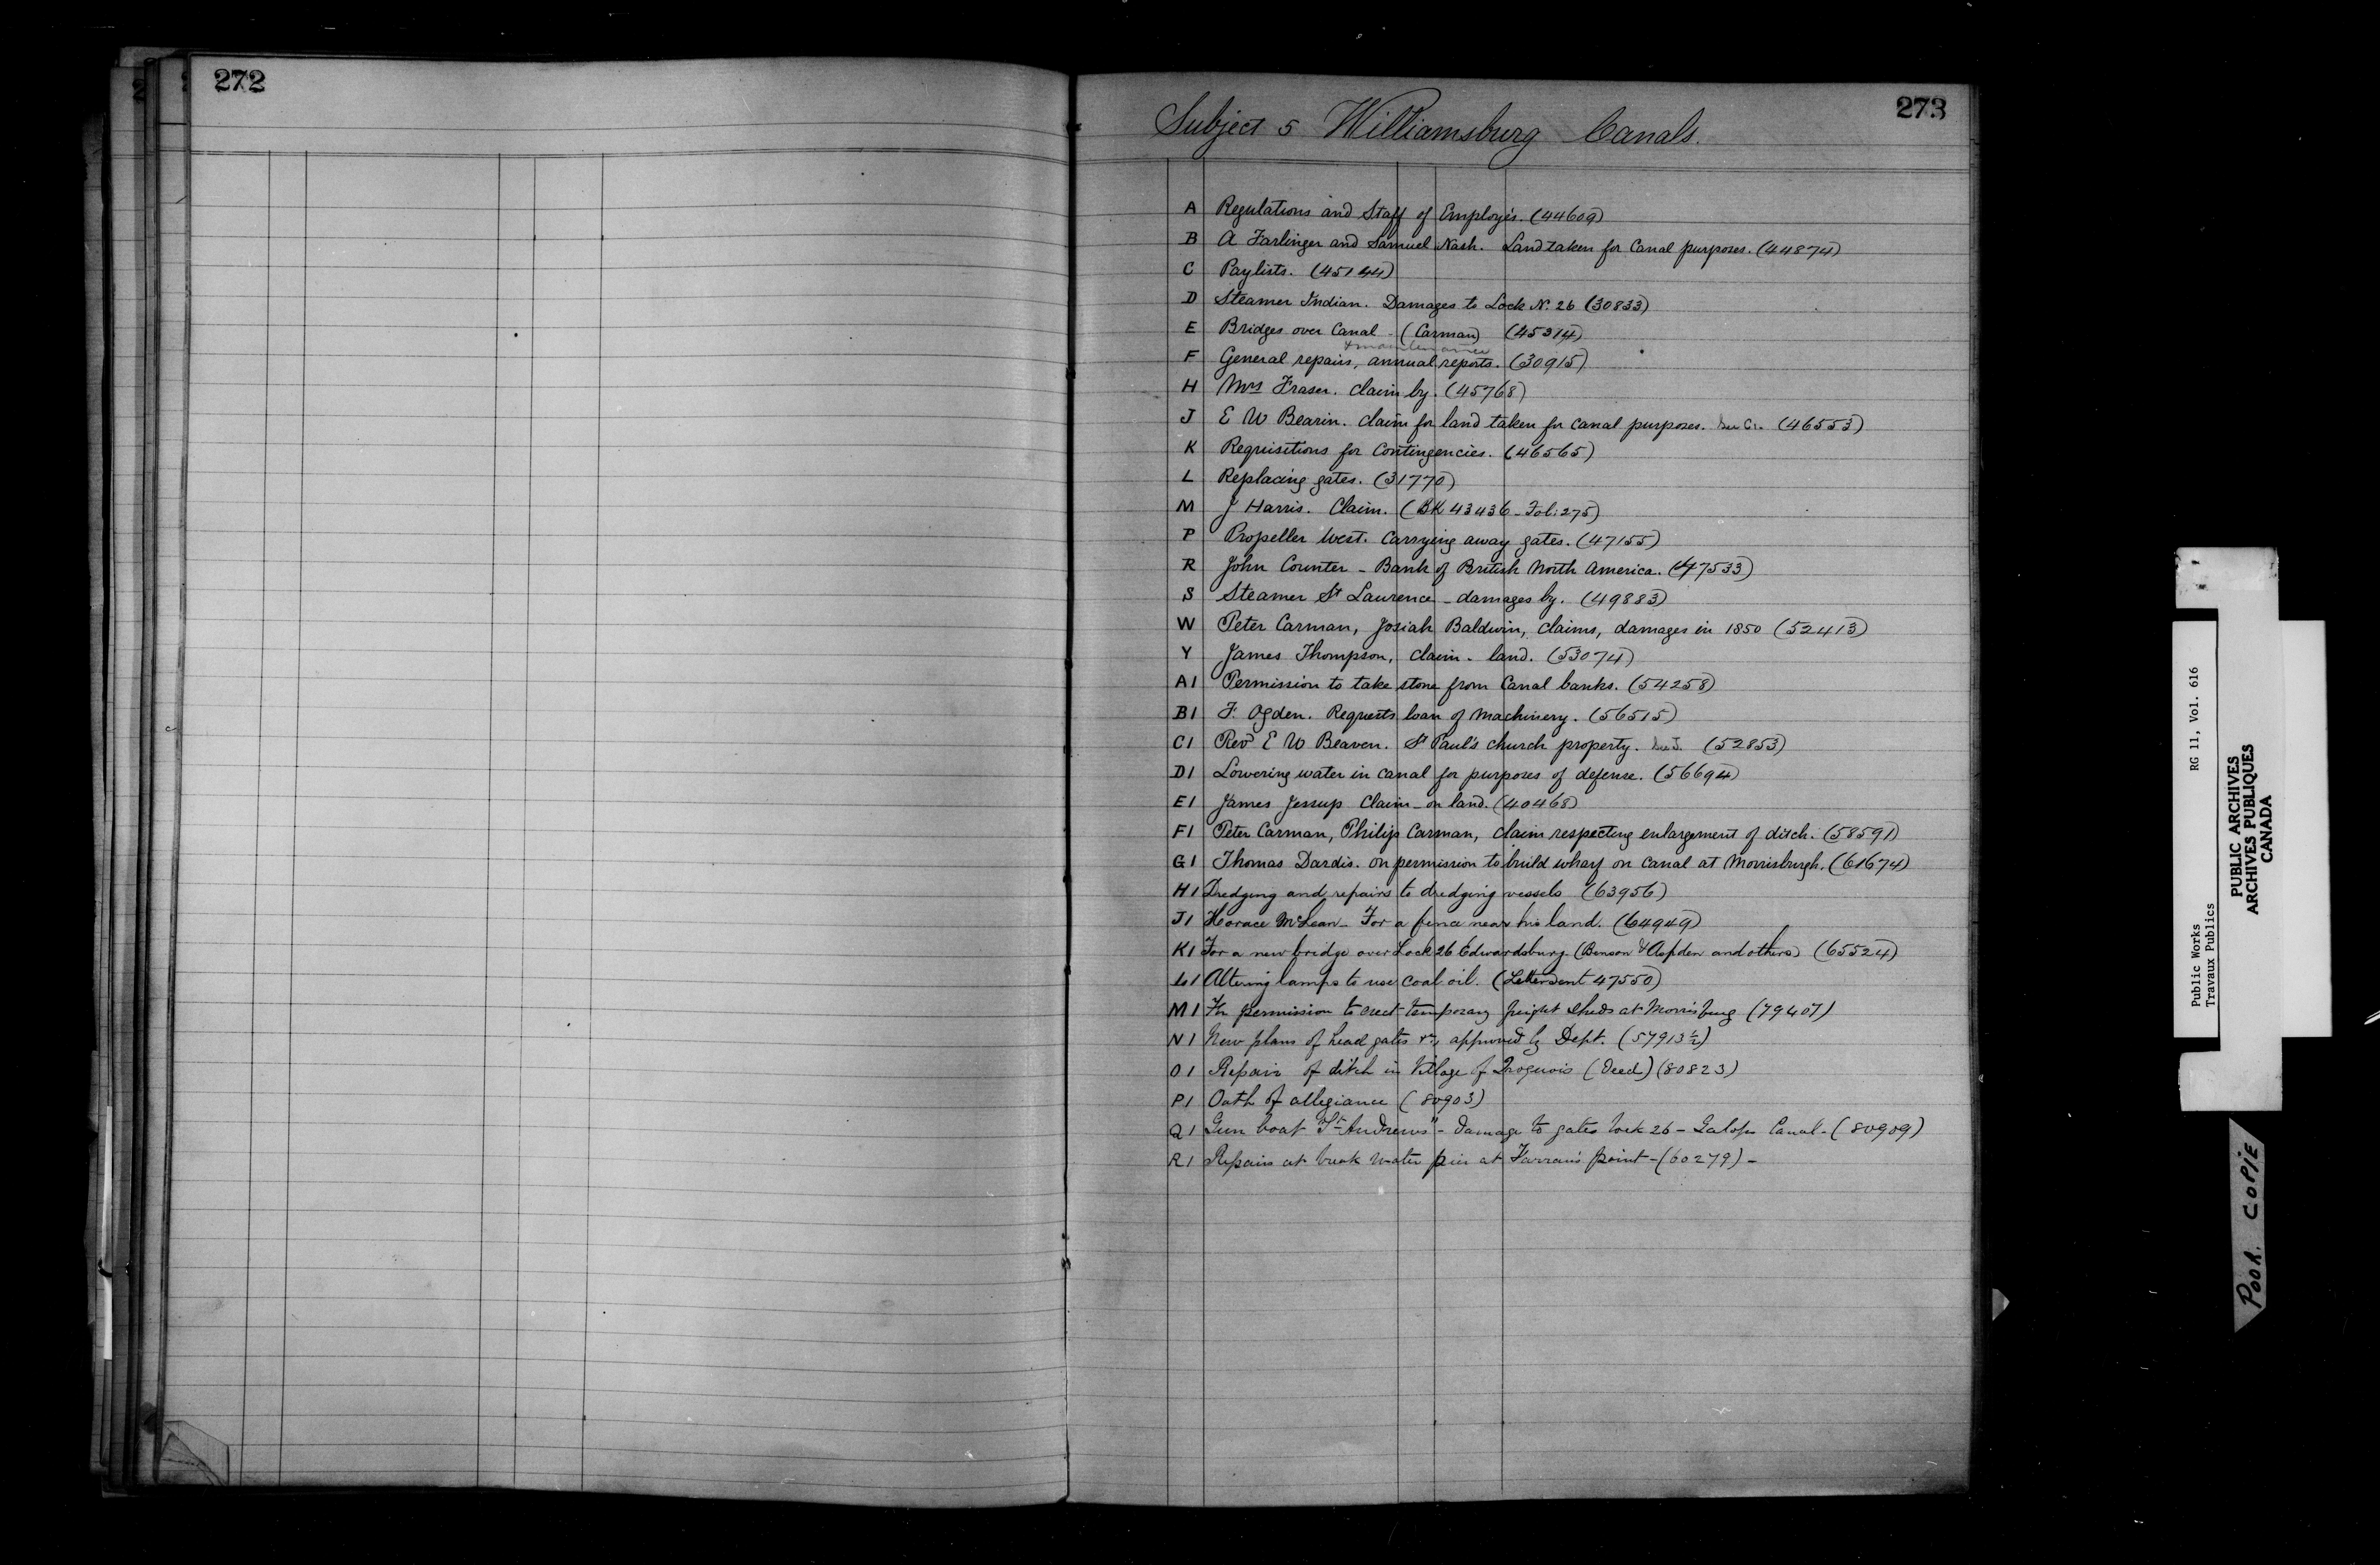 272
273
Subject 5 Williamsburg Canals.
A Regulations and Staff of Employés. (44609)
B A Farlinger and Samuel Nash. Land taken for Canal purposes. (44874)
C Paylists. (45144)
D Steamer Indian. Damages to Lock No. 26 (30833)
E Bridges over Canal - (Carman) (45314)
& maintenance
F General repairs, annual reports. (30915)
H Mrs Fraser. Claim by. (45768)
J E W Bearin. Claim for land taken for Canal purposes. See C1. (46553)
K Requisitions for Contingencies. (46565)
L Replacing gates. (31770)
M J Harris. Claim. (BK 43436 - Fol: 275)
P Propeller West. Carrying away gates. (47155)
R John Counter - Bank of British North America. (47533)
S Steamer St Laurence - damages by. (49883)
W Peter Carman, Josiah Baldwin, claims, damages in 1850 (52413)
Y James Thompson, claim - land. (53074)
A1 Permission to take stone from Canal banks. (54258)
B1 F. Ogden. Requests loan of Machinery. (56515)
C1 Revd E W Beaven. St Paul's church property. See J. (52853)
D1 Lowering water in canal for purposes of defense. (56694)
E1 James Jessup Claim - on land. (40468)
F1 Peter Carman, Philip Carman, claim respecting enlargement of ditch. (58591)
G1 Thomas Dardis. on permission to build wharf on canal at Morrisburgh. (61674)
H1 Dredging and repairs to dredging vessels (63956)
J1 Horace McLean - For a fence near his land. (64949)
K1 For a new bridge over Lock 26 Edwardsburg. (Benson & Aspden and others) (65524)
L1 Altering lamps to use coal oil. (Letter sent 47550)
M1 For permission to erect temporary freight sheds at Morrisburg (79407)
N1 New plans of head gates &c, approved by Dept. (57913½)
O1 Repair of ditch in Village of Iroquois (Deed) (80823)
P1 Oath of allegiance (80903)
Q1 Gun boat "St Andrews" - damage to gates lock 26 - Galops Canal - (80909)
R1 Repairs at break water pier at Farran's point - (60279) -
Public Works RG 11, Vol. 616
Travaux Publics
PUBLIC ARCHIVES
ARCHIVES PUBLIQUES
CANADA
POOR COPIE